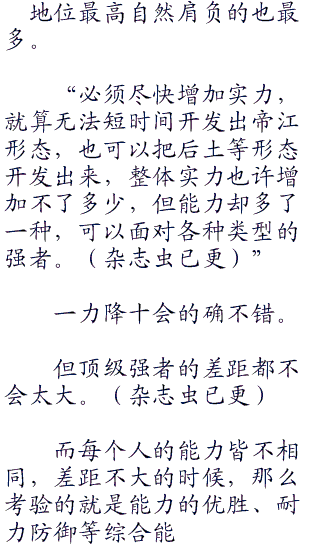 地位最高自然肩负的也最
多。
“必须尽快增加实力，
就算无法短时间开发出帝江
形态，也可以把后土等形态
开发出来，整体实力也许增
加不了多少，但能力却多了
一种，可以面对各种类型的
强者。（杂志虫已更）”
一力降十会的确不错。
但顶级强者的差距都不
会太大。（杂志虫已更）
而每个人的能力皆不相
同，差距不大的时候，那么
考验的就是能力的优胜、耐
力防御等综合能